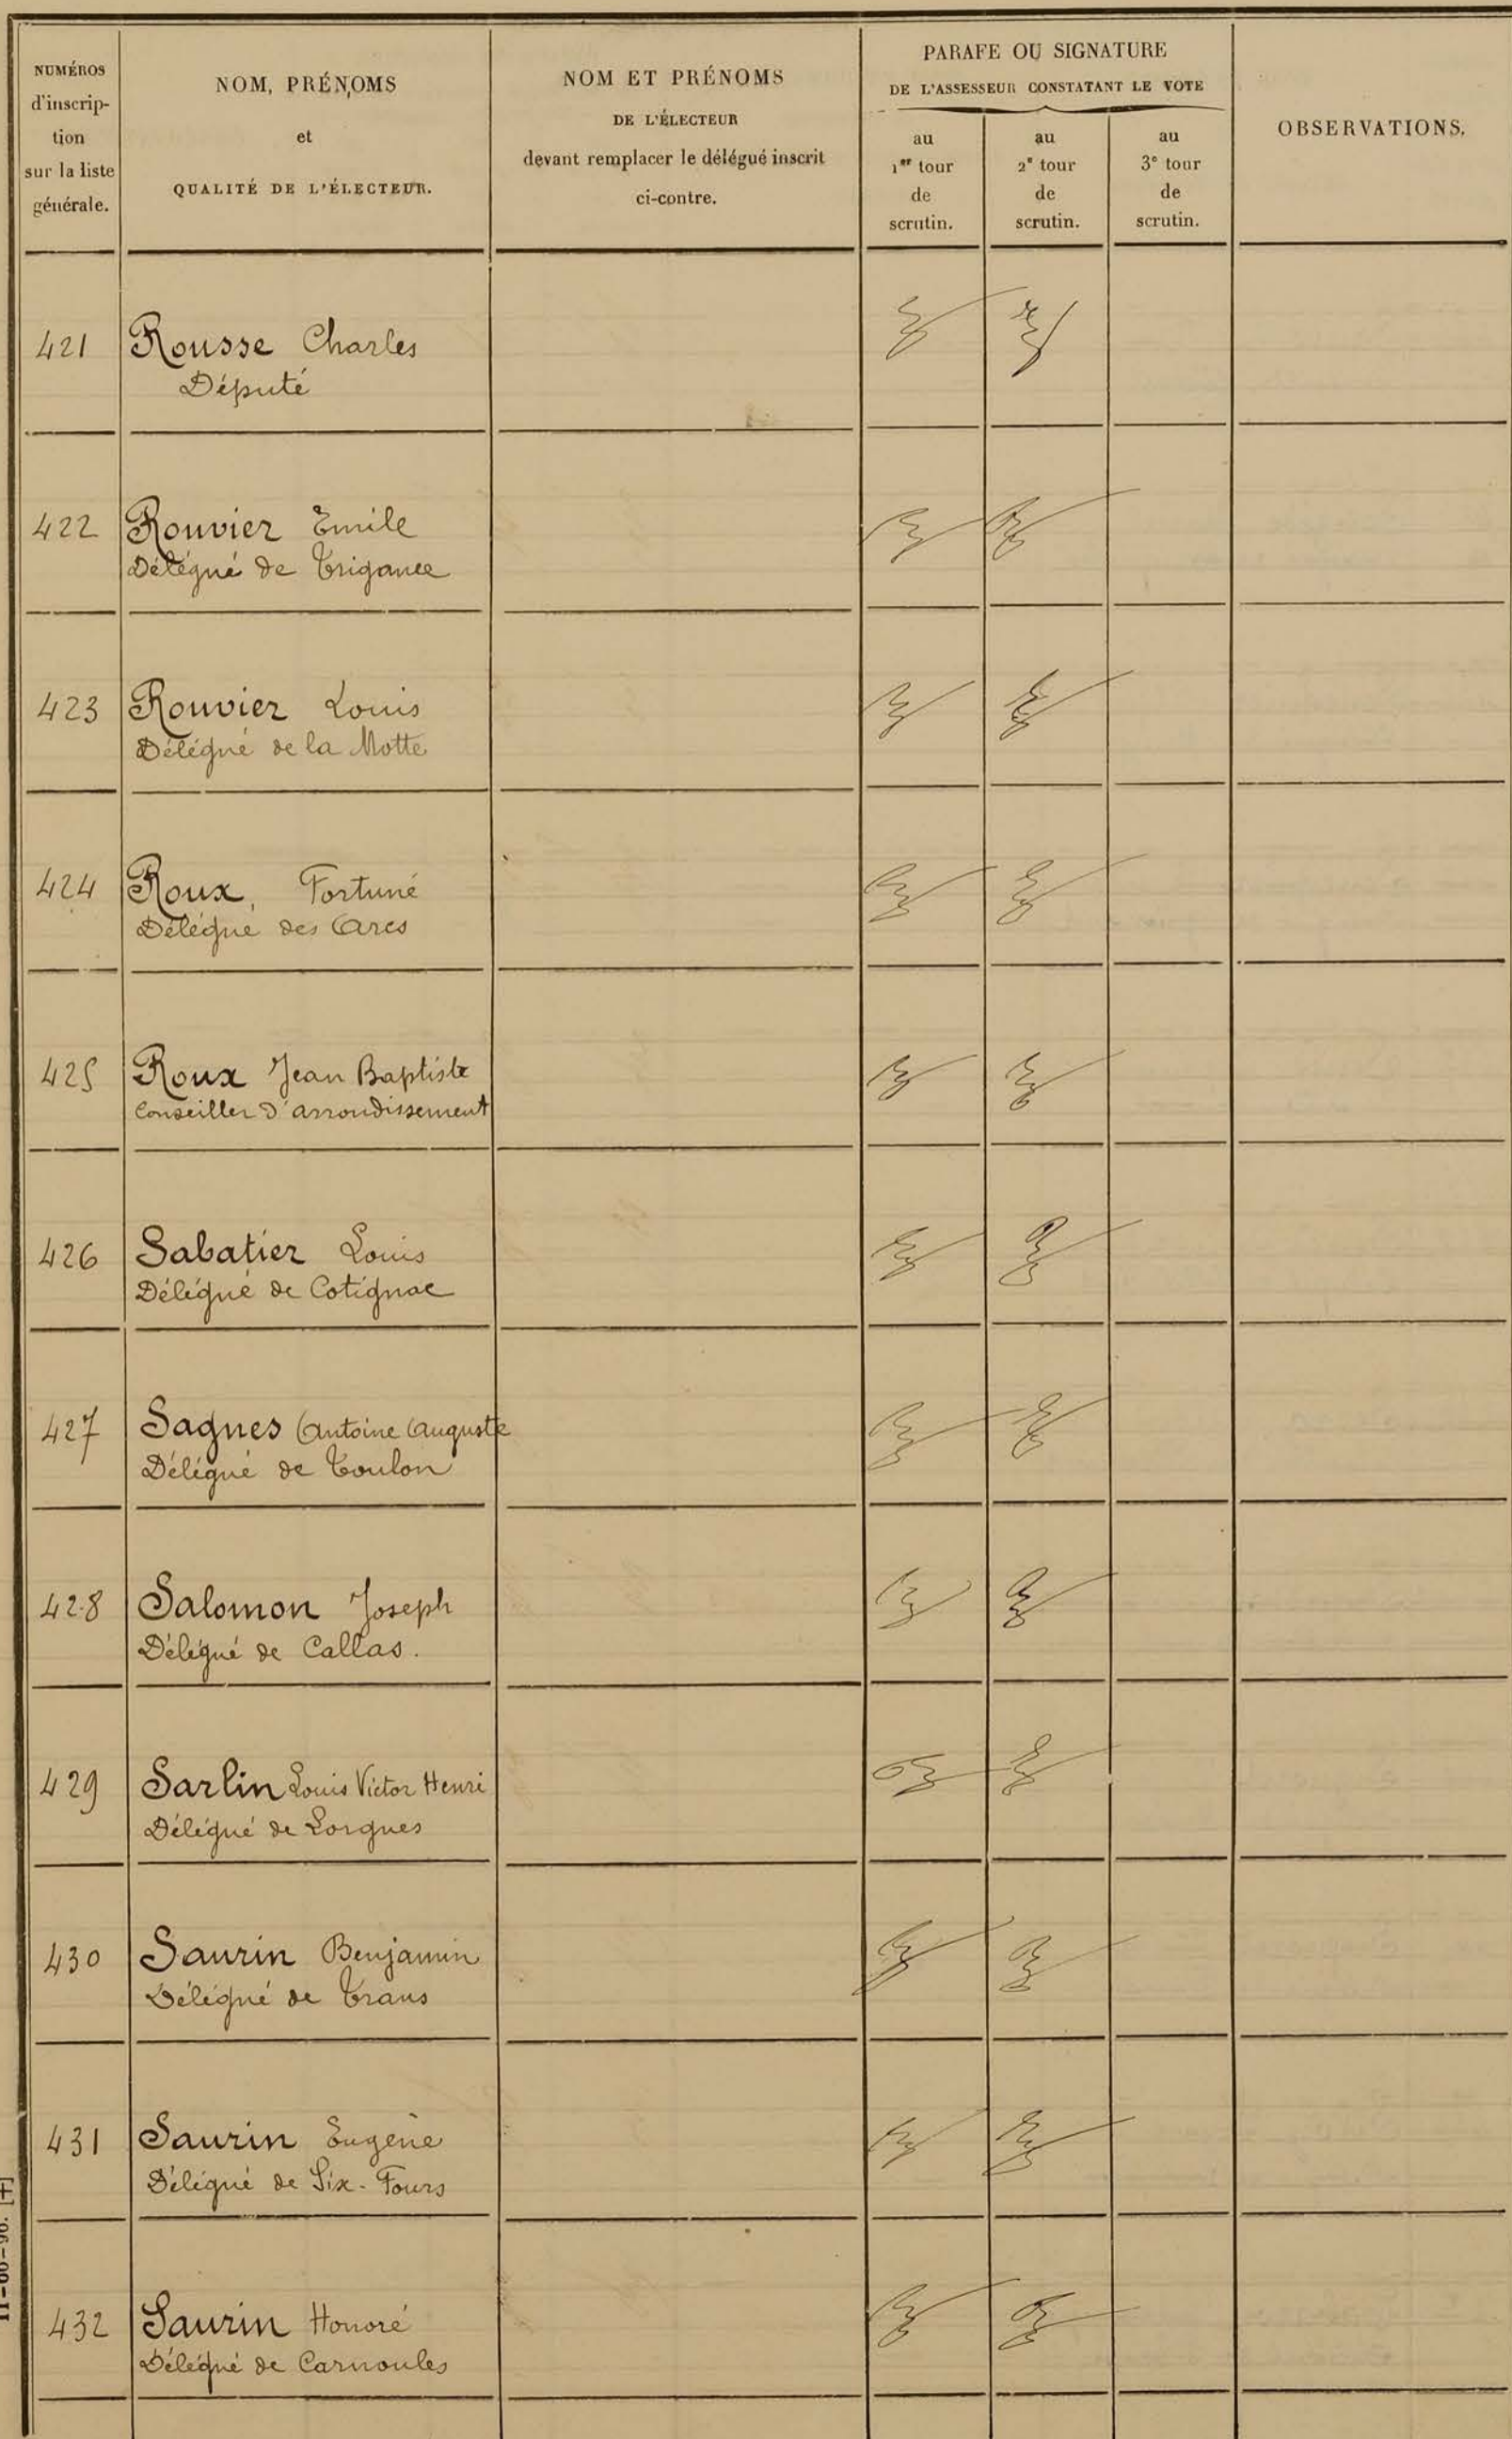 NUMÉROS
d'inscrip-
tion
sur la liste
générale.
NOM, PRÉNOMS
et
QUALITÉ DE L'ÉLECTEUR.
NOM ET PRÉNOMS
DE L'ÉLECTEUR
devant remplacer le délégué inscrit
ci-contre.
PARAFE OU SIGNATURE
DE L'ASSESSEUR CONSTATANT LE VOTE
au
1er tour
de
scrutin.
au
2e tour
de
scrutin.
au
3e tour
de
scrutin.
OBSERVATIONS.
421 Rousse Charles
Député
422 Rouvier Emile
Délégué de Trigance
423 Rouvier Louis
Délégué de la Motte
424 Roux, Fortuné
Délégué des Arcs
425 Roux Jean Baptiste
Conseiller d'arrondissement
426 Sabatier Louis
Délégué de Cotignac
427 Sagnes Antoine Auguste
Délégué de Toulon
428 Salomon Joseph
Délégué de Callas.
429 Sarlin Louis Victor Henri
Délégué de Lorgues
430 Saurin Benjamin
Délégué de Trans
431 Saurin Eugène
Délégué de Six-Fours
432 Saurin Honoré
Délégué de Carnoules